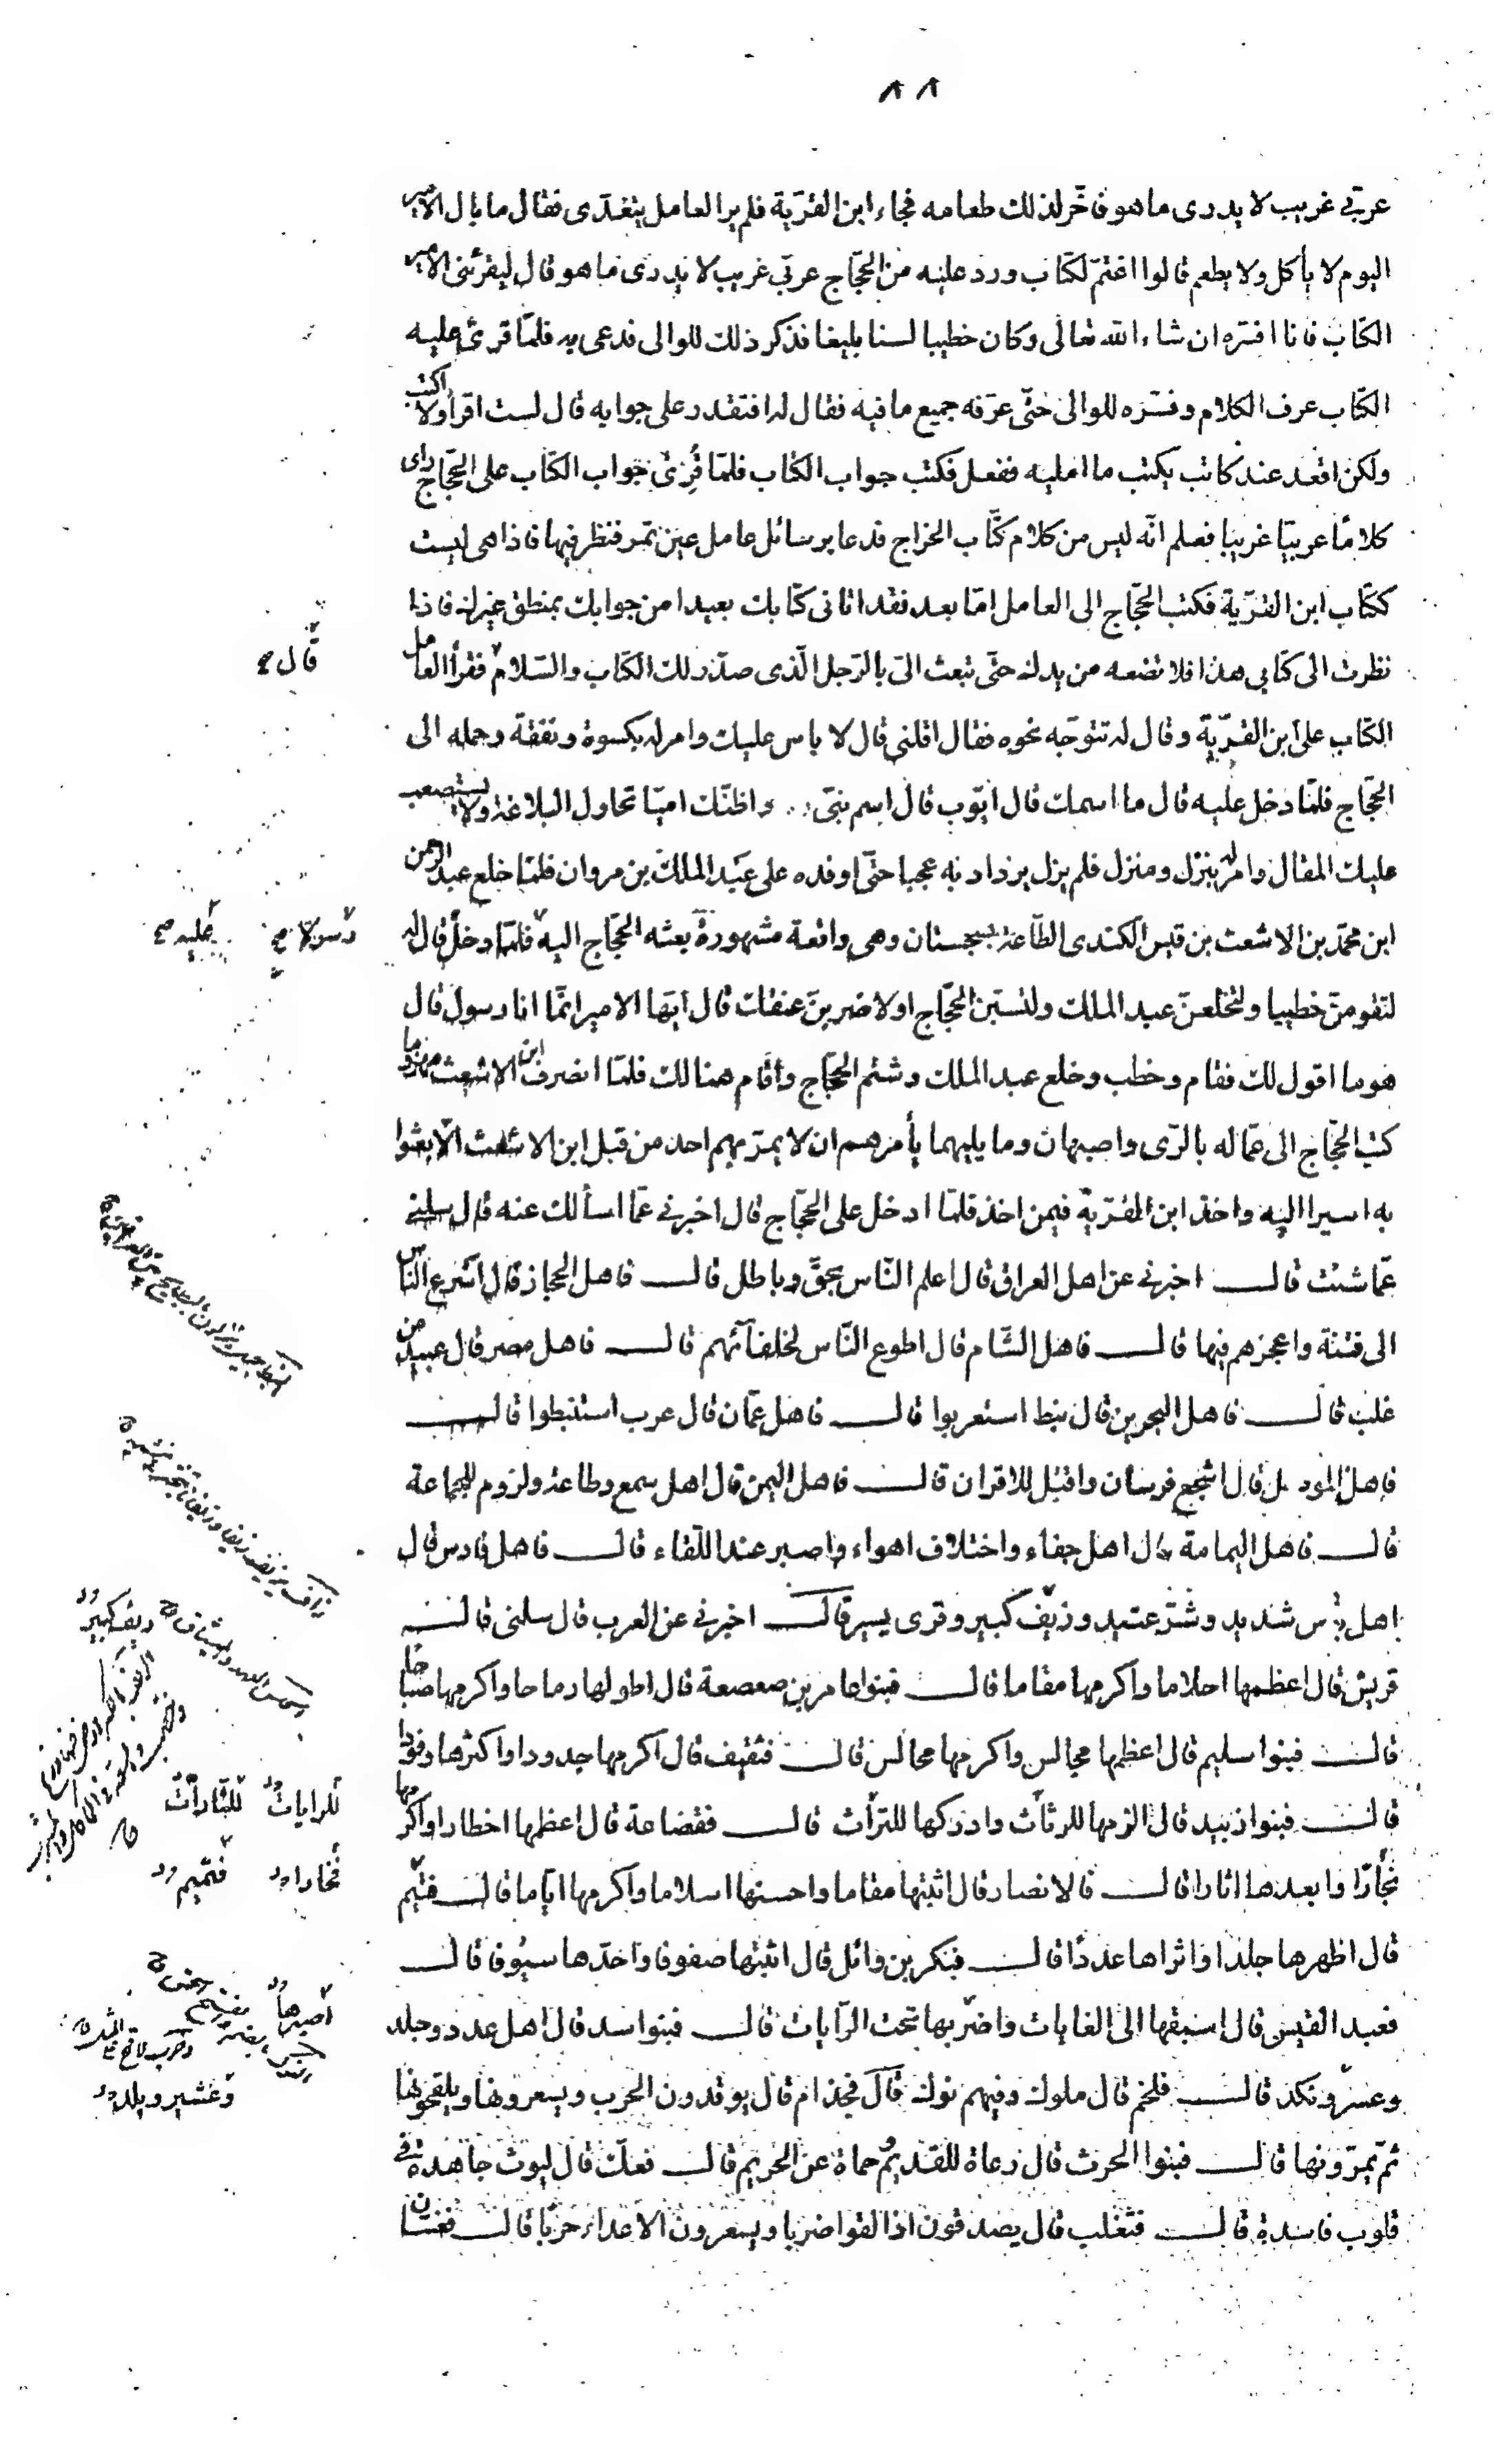 ٨٨
عربي غريب لا يدرى ما هو فاخّر لذلك طعامه فجاء ابن القرّية فلم ير العامل يتغدّى فقال ما بال الامير
اليوم لا يأكل ولا يطعم قالوا اغتمّ لكتاب ورد عليه من الحجّاج عربي غريب لا يدرى ما هو قال ليقرئنى الامير
الكتاب فانا افسّره ان شاء الله تعالى وكان خطيبا لسنا بليغا فذكر ذلك للوالى فدعى به فلمّا قرئ عليه
الكتاب عرف الكلام وفسّره للوالى حتّى عرّفه جميع ما فيه فقال له افتقدر على جوابه قال لست اقرأ ولا اكتب
ولكن اقعد عند كاتب يكتب ما امليه ففعل فكتب جواب الكتاب فلمّا قُرِئ جواب الكتاب على الحجّاج رأى
كلامًا عربيّا غريبا فعلم انّه ليس من كلام كتّاب الخراج فدعا برسائل عامل عين تمر فنظر فيها فاذا هى ليست
ككتاب ابن القرّية فكتب الحجّاج الى العامل امّا بعد فقد اتانى كتابك بعيدا من جوابك بمنطق غيرك فاذا
نظرت الى كتابى هذا فلا تضعه من يدك حتّى تبعث الىّ بالرّجل الّذى صدّر لك الكتاب والسّلام فقرأ العامل
قال صح
الكتاب على ابن القرّيّة وقال له تتوجّه نحوه فقال اقلنى قال لا باس عليك وامر له بكسوة ونفقة وحمله الى
الحجّاج فلمّا دخل عليه قال ما اسمك قال ايّوب قال اسم نبىّ واظنّك اميّا تحاول البلاغة ولا يستصعب
عليك المقال وامر له بنزل ومنزل فلم يزل يزداد به عجبا حتّى اوفده على عبد الملك بن مروان فلمّا خلع عبد الرّحمن
ابن محمّد بن الاشعث بن قيس الكندى الطّاعة بسجستان وهى واقعة مشهورة بعثه الحجّاج اليه فلمّا دخل قال له
رسولا صح عليه صح
لتقومنّ خطيبا ولتخلعنّ عبد الملك ولتسبّن الحجّاج او لاضربنّ عنقك قال ايّها الامير انّما انا رسول قال
هو ما اقول لك فقام وخطب وخلع عبد الملك وشتم الحجّاج وأقام هنالك فلمّا انصرف ابن الاشعث مهزوما
كتب الحجّاج الى عمّاله بالرّى واصبهان وما يليهما يأمرهم ان لا يمرّ بهم احد من قبل ابن الاشعث الّا بعثوا
به اسيرا اليه واخذ ابن القرّية فيمن اخذ فلمّا ادخل على الحجّاج قال اخبرنى عمّا اسألك عنه قال سلنى
عمّا شئت قال اخبرنى عن اهل العراق قال اعلم النّاس بحقّ وباطل قال فاهل الحجاز قال اسرع النّاس
الى فتنة واعجزهم فيها قال فاهل الشّام قال اطوع النّاس لخلفآئهم قال فاهل مصر قال عبيد من
غلب قال فاهل البحرين قال نبط استعربوا قال فاهل عمّان قال عرب استنبطوا قال
فاهل الموصل قال اشجع فرسان واقتل للاقران قال فاهل اليمن قال اهل سمع وطاعة ولزوم للجماعة
قال فاهل اليمامة قال اهل جفاء واختلاف اهواء واصبر عند اللّقاء قال فاهل فارس قال
اهل بأس شديد وشرّ عتيد وزيف كبير وقرى يسير قال اخبرنى عن العرب قال سلنى قال
قريش قال اعظمها احلاما واكرمها مقاما قال فبنوا عامر بن صعصعة قال اطولها رماحا واكرمها صباحا
قال فبنوا سليم قال اعظمها مجالس واكرمها محالس قال فثقيف قال اكرمها جدودا واكثرها وفودا
قال فبنوا زبيد قال الزمها للرثات وادركها للترات قال فقضاعة قال اعظمها اخطارا واكرمها
للرايات للثارات
نجّارًا وابعدها اثارا قال فالانصار قال اثبتها مقاما واحسنها اسلاما واكرمها ايّاما قال فتيّم
نجارا فتميم
قال اظهرها جلدا واثراها عددًا قال فبكر بن وائل قال اثبتها صفوفا واحدّها سيوفا قال
فعبد القيس قال اسبقها الى الغايات واضربها تحت الرّايات قال فبنوا اسد قال اهل عدد وجلد
اصبرها
وعسر ونكد قال فلخم قال ملوك وفيهم نوك قال فجذام قال يوقدون الحرب ويسعرونها ويلقحونها
ثمّ يمرّونها قال فبنوا الحرث قال رعاة للقديم وحماة عن الحريم قال فعكّ قال ليوث جاهدة فى
قلوب فاسدة قال فتغلب قال يصدقون اذا لقوا ضربا ويسعرون الاعداء حربا قال فغسّان